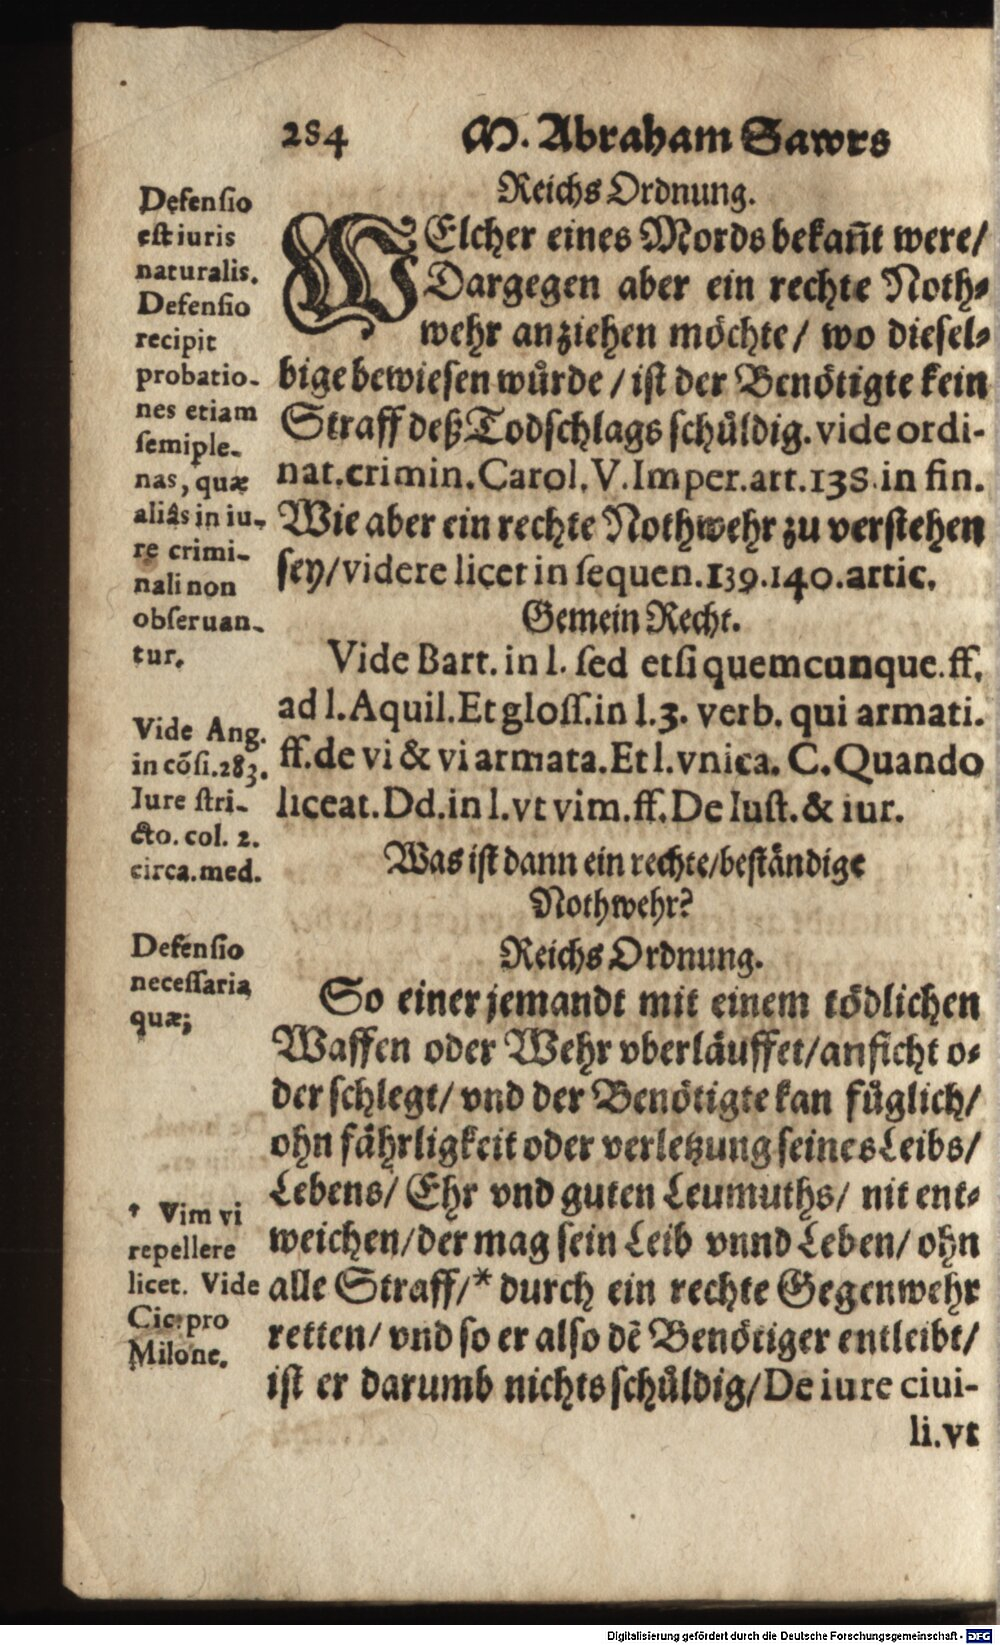 284 M. Abraham Sawrs
Reichs Ordnung.
WElcher eines Mords bekañt were/
Dargegen aber ein rechte Noth⸗
wehr anziehen möchte/ wo diesel⸗
bige bewiesen wůrde / ist der Benötigte kein
Straff deß Todschlags schůldig. vide ordi-
nat.crimin.Carol.V.Imper.art.138.in fin.
Wie aber ein rechte Nothwehr zu verstehen
sey/videre licet in sequen.139.140.artic.
Gemein Recht.
Vide Bart. in l. sed etsi quemcunque.ff.
ad l.Aquil.Et gloss.in l.3. verb. qui armati.
ff.de vi & vi armata.Et l.vnica. C.Quando
liceat.Dd.in l.vt vim.ff.De Iust.& iur.
Was ist dann ein rechte/beständige
Nothwehr?
Reichs Ordnung.
So einer jemandt mit einem tödlichen
Waffen oder Wehr vberläuffet/anficht o⸗
der schlegt/ vnd der Benötigte kan fůglich/
ohn fährligkeit oder verletzung seines Leibs/
Lebens/ Ehr vnd guten Leumuths/ nit ent⸗
weichen/der mag sein Leib vnnd Leben/ ohn
alle Straff/* durch ein rechte Gegenwehr
retten/ vnd so er also dē Benötiger entleibt/
ist er darumb nichts schůldig/De iure ciui-
li.vt
Defensio
est iuris
naturalis.
Defensio
recipit
probatio-
nes etiam
semiple-
nas, quæ
aliâs in iu-
re crimi-
nali non
obseruan-
tur.
Vide Ang.
in cõsi.283.
Iure stri-
cto. col. 2.
circa.med.
Defensio
necessaria
quæ;
* Vim vi
repellere
licet. Vide
Cic.pro
Milone.
Digitalisierung gefördert durch die Deutsche Forschungsgemeinschaft - DFG